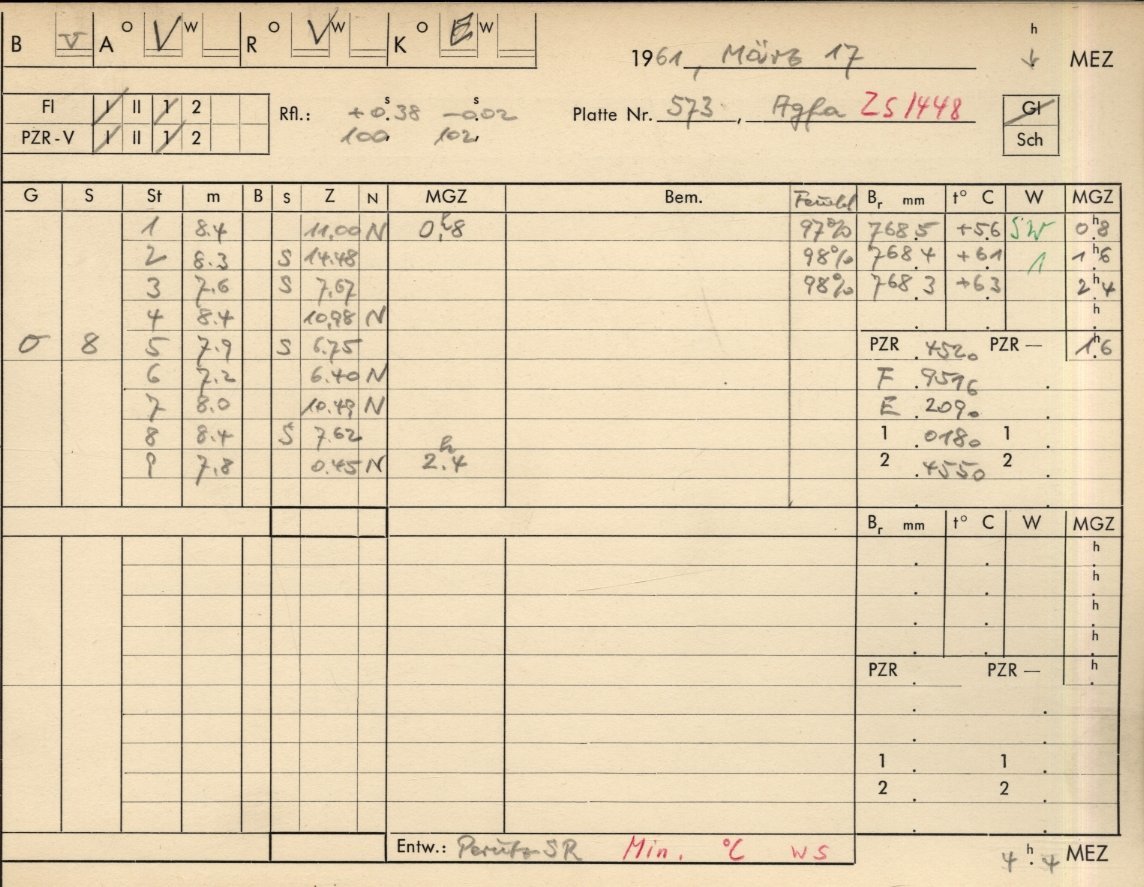 B V A O V W R O V W K O E W
1961, März 17 h MEZ
FI I II 1 2
PZR-V I II 1 2
Rfl.: +0.ˢ38 -0.ˢ02
100. 102.
Platte Nr. 573, Agfa ZS1448
Gl
Sch
G S St m B S Z N MGZ Bem. Br mm t° C W MGZ
1 8.4 11.00 N 0.ʰ8 97% 768.5 +5.6 SW 0.ʰ8
2 8.3 S 14.48 98% 768.4 +6.1 1 1.ʰ6
3 7.6 S 7.67 98% 768.3 +6.3 2.ʰ4
4 8.4 10.98 N . . h.
σ 8 5 7.9 S 6.75 PZR .4520 PZR — 1.ʰ6
6 7.2 6.40 N F .9516 .
7 8.0 10.49 N E .2090
8 8.4 S 7.62 1 .0180 1 .
9 7.8 0.45 N 2.ʰ4 2 .4550 2 .
Br mm t° C W MGZ
. . h.
. . h.
. . h.
. . h.
PZR . PZR — h.
. .
. .
1 . 1 .
2 . 2 .
. .
Entw.: Perutz SR Min. °C WS
4.ʰ4 MEZ